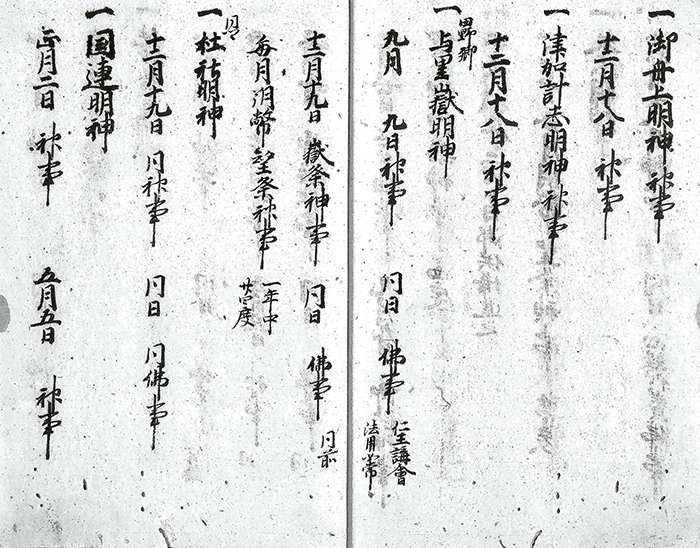 一御舟上明神 神事
十二月十八日 神事
一津加計志明神 神事
十二月十八日 神事
野郷
一与里嶽明神
九月 九日神事 同日 佛事 仁王講會
法用如常
十二月十九日 嶽祭神事 同日 佛事 同前
毎月朔幣 望祭神事 一年中
廿四度
同
一杜社明神
十二月十九日 同神事 同日 同佛事
一国連明神
正月二日 神事 五月五日 神事